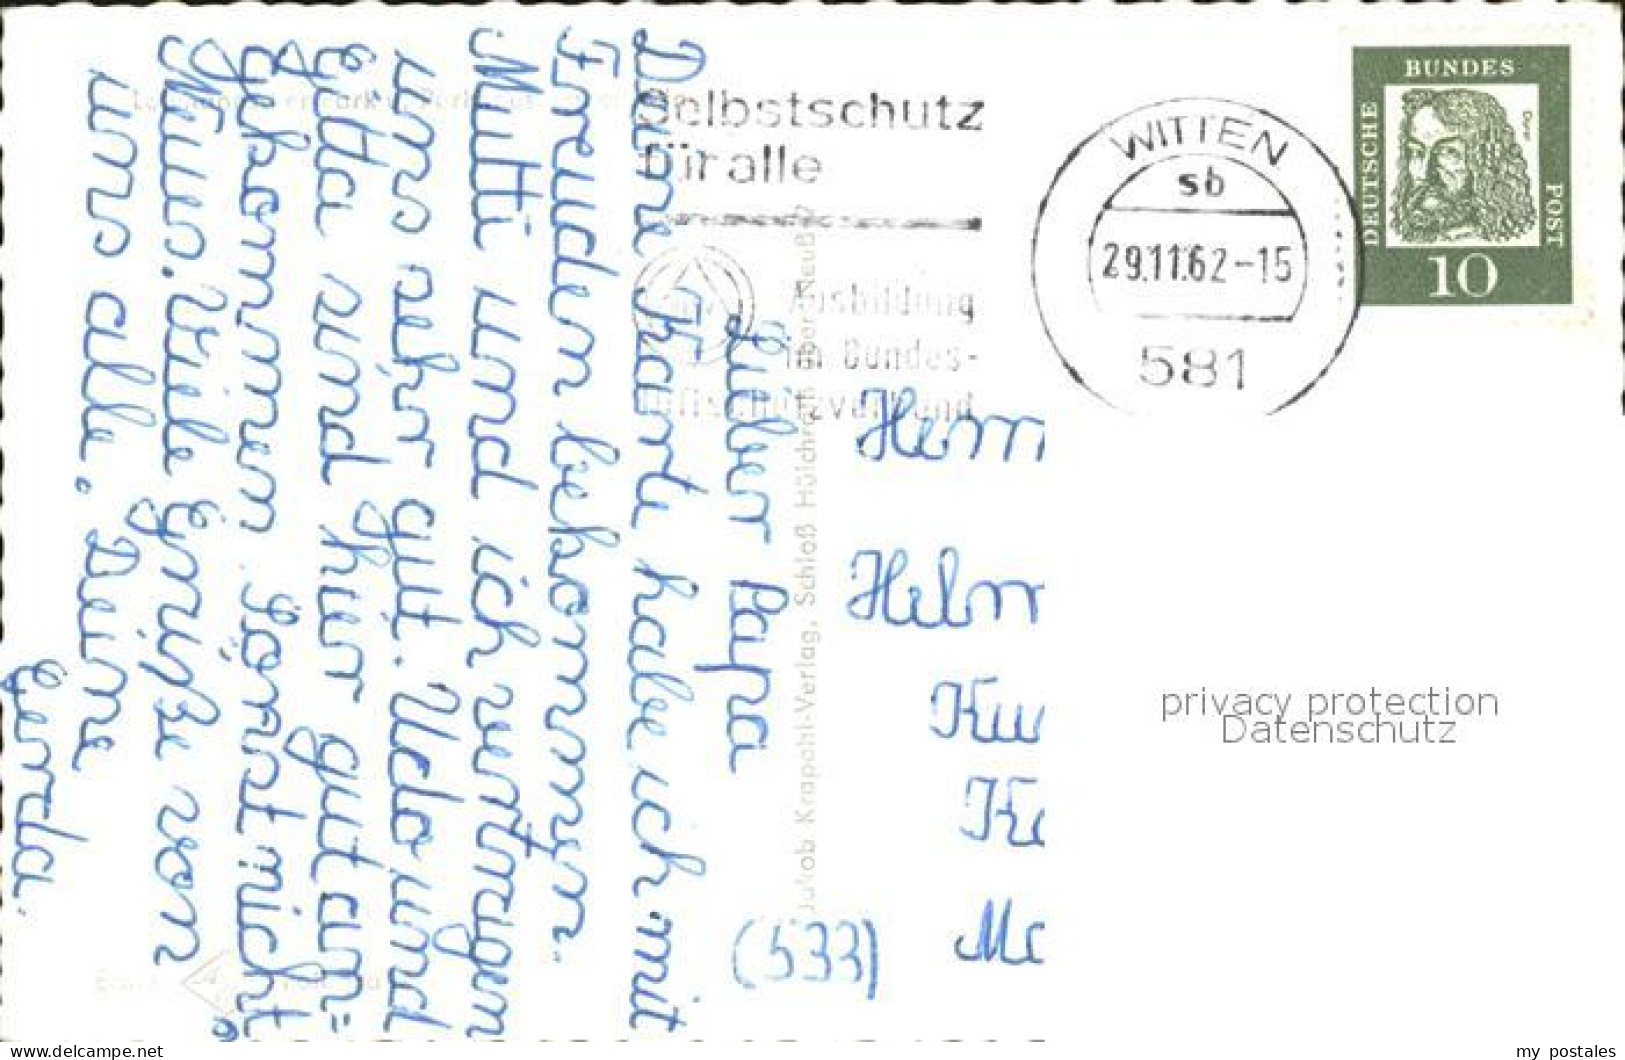 Lieber Papa
Deine Karte habe ich mit
Freuden bekommen.
Mutti und ich vertragen
uns sehr gut. Udo und
Gitta sind hier gut an=
gekommen. Sonst nicht
Neues. Viele Grüße von
uns alle. Deine
Gerda.
Selbstschutz
für alle
Ausbildung
im Bundes-
luftschutzverband
WITTEN
sb
29.11.62-15
581
DEUTSCHE
BUNDES
POST
Dürer
10
Herrn
Helm
(533)
Jakob Krapohl-Verlag, Schloß Hülchrath über Neuß
privacy protection
Datenschutz
www.delcampe.net
my_postales